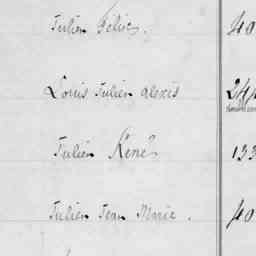 Julien Felix. 40
Louis Julien alexis 24
Julien René 133
Julien Jean Marie. 40